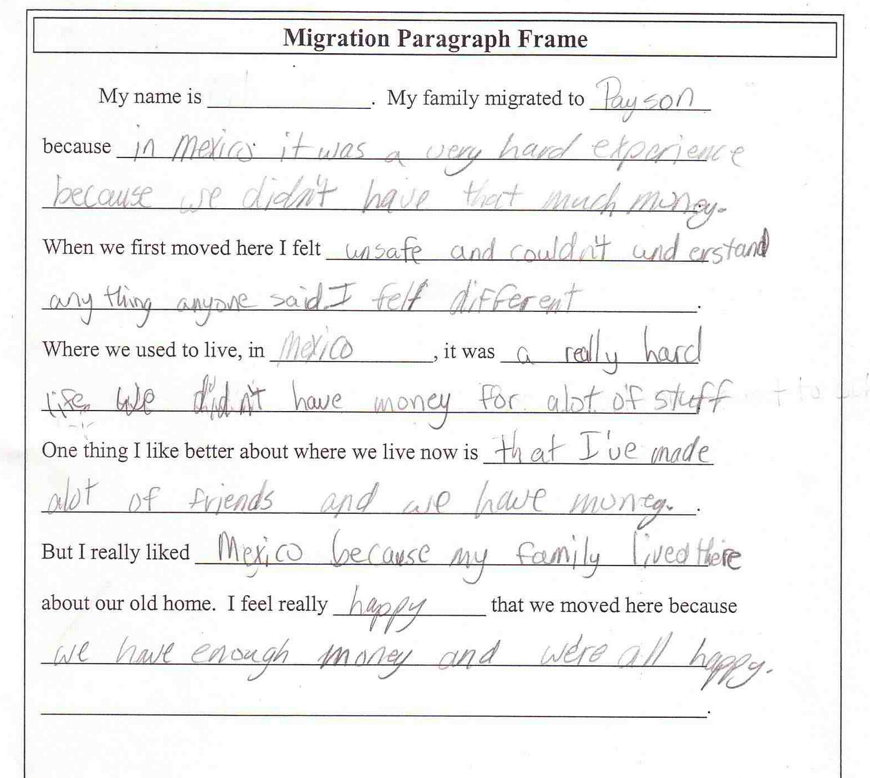 Migration Paragraph Frame
My name is ______________. My family migrated to Payson
because in Mexico it was a very hard experience
because we didn't have that much money.
When we first moved here I felt unsafe and couldn't understand
any thing anyone said. I felt different.
Where we used to live, in Mexico, it was a really hard
life We didn't have money for alot of stuff
One thing I like better about where we live now is that I've made
alot of friends and we have money.
But I really liked Mexico because my family lived there
about our old home. I feel really happy that we moved here because
we have enough money and we're all happy.